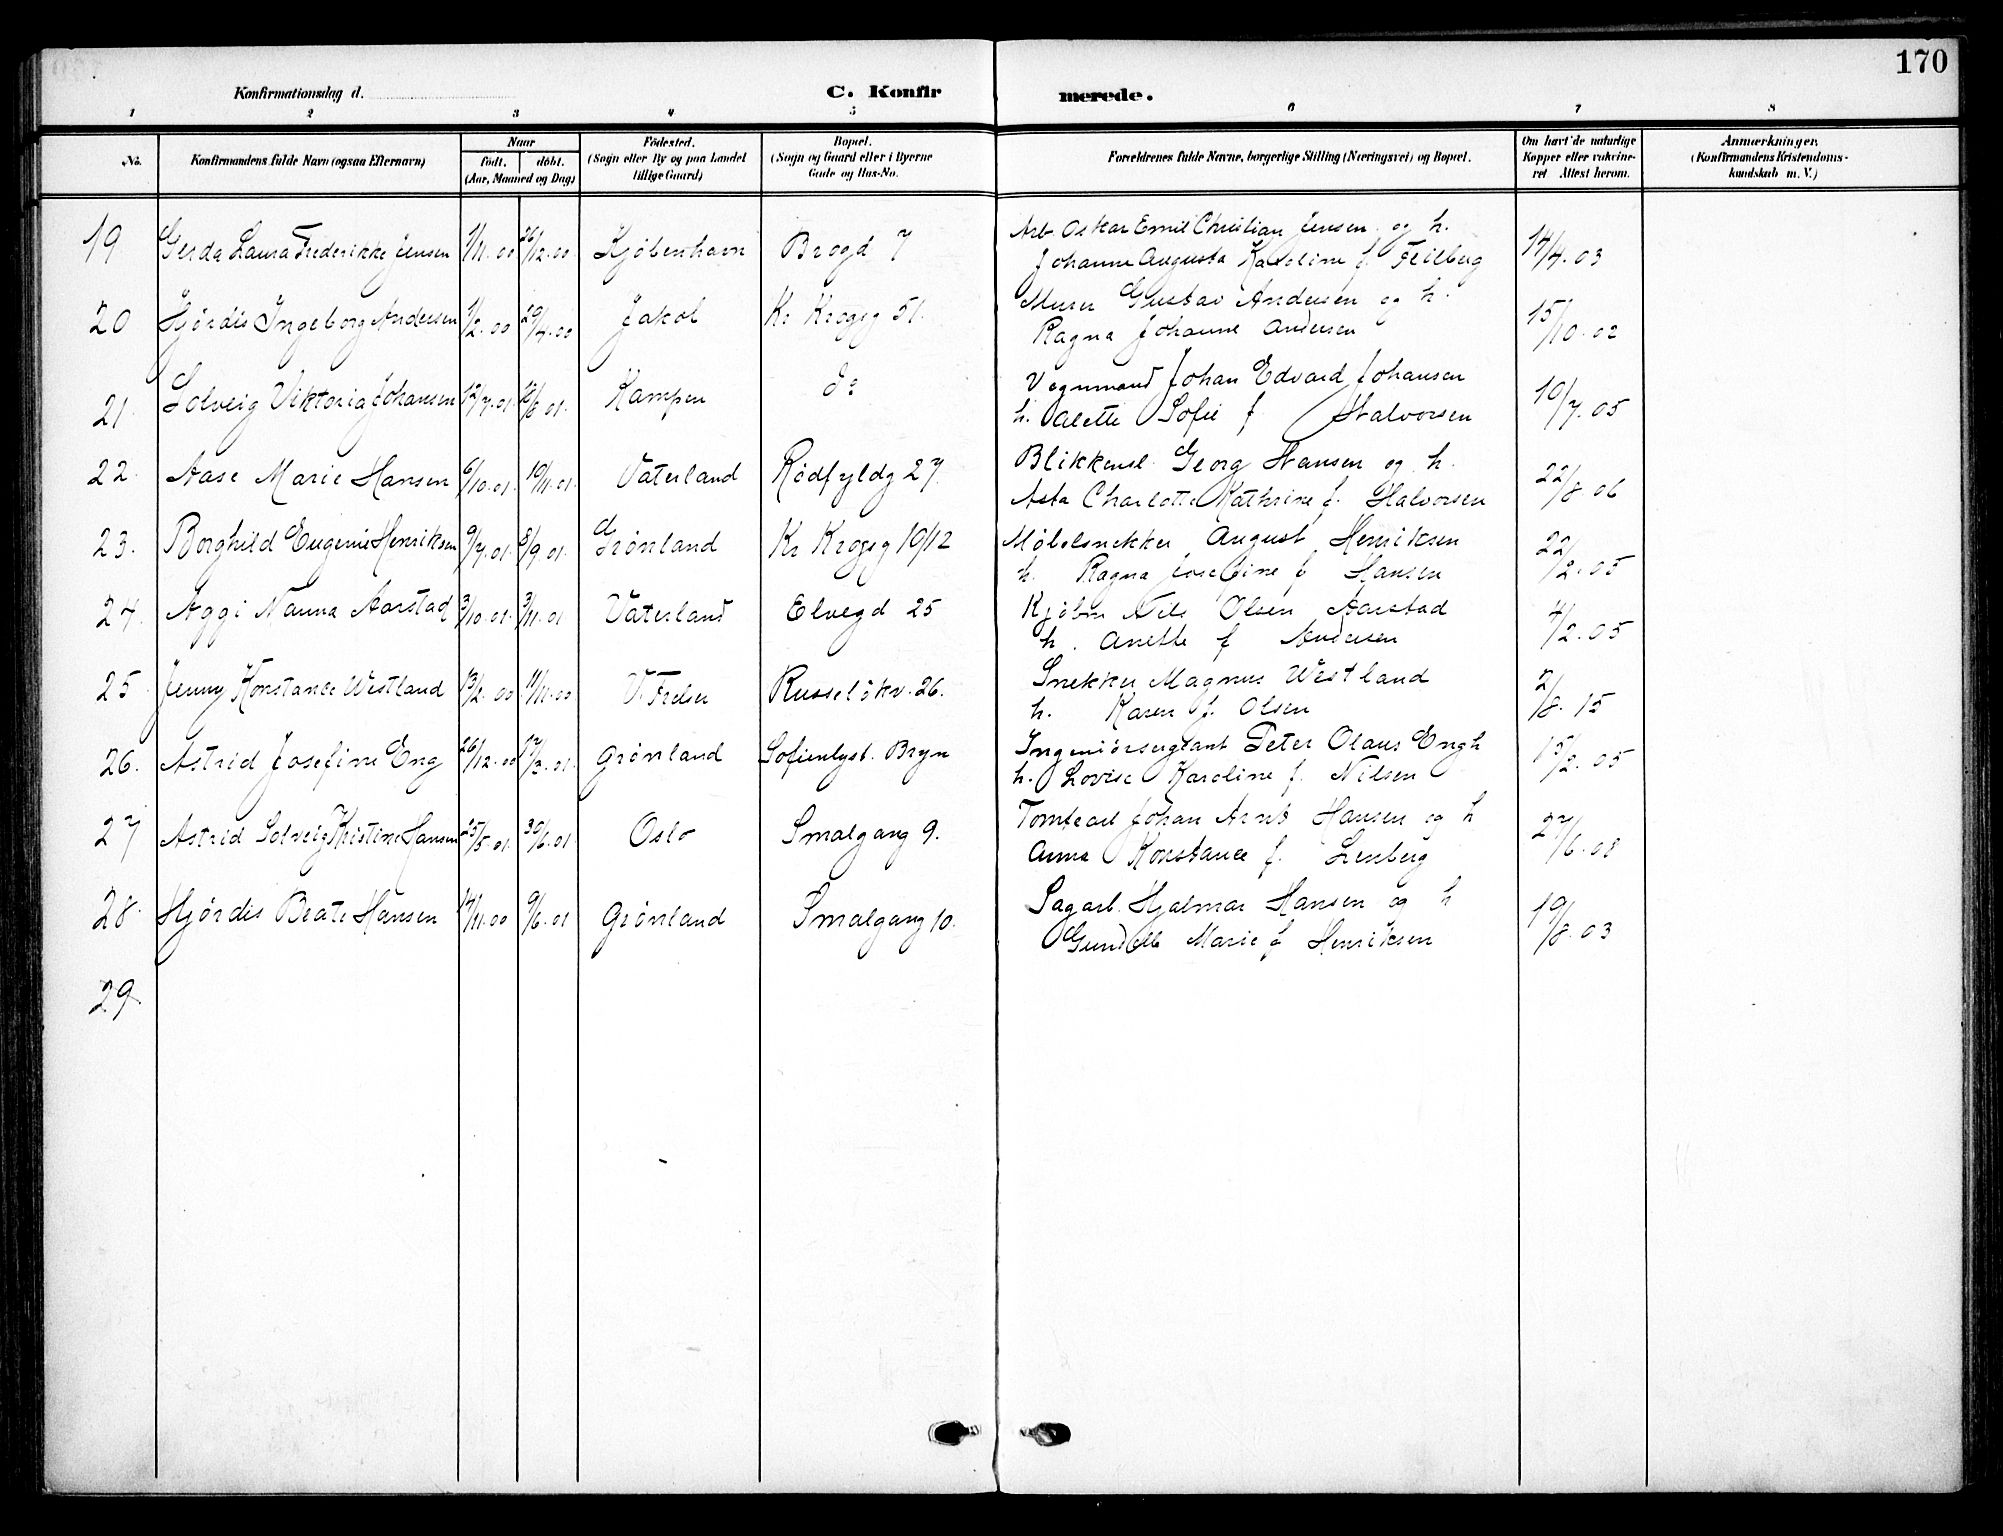 170
Konfirmationsdag d.
C. Konfirmerede.
1 2 3 4 5 6 7 8
No. Konfirmandens fulde Navn (ogsaa Efternavn) Naar født, døbt. (Aar, Maaned og Dag) Fødested. (Sogn eller By og paa Landet tillige Gaard) Bopæl. (Sogn og Gaard eller i Byerne Gade og Hus-No. Forældrenes fulde Navne, borgerlige Stilling (Næringsvei) og Bopæl. Om havt de naturlige Kopper eller vakcineret Attest herom. Anmærkninger. (Konfirmandens Kristendomskundskab m. V.)
19 Gerda Laura Frederikke Jensen 1/11.00 26/12.00 Kjøbenhavn Brogd 7 Arb. Oskar Emil Christian Jensen og h. 14/4.03
Johanne Augusta Karoline f. Feilberg
20 Hjørdis Ingeborg Andersen 1/2.00 29/4.00 Jakob Kr Krogsg 51. Murer Gustav Andersen og h. 15/10.02
Ragna Johanne Andersen
21 Solveig Viktoria Johansen 12/7.01. Kampen do Vognmand Johan Edvard Johansen 10/7.05
h. Alette Sofie f Halvorsen
22. Aase Marie Hansen 6/10.01. 10/11.01. Vaterland Rødfyldg 27. Blikkensl. Georg Hansen og h. 22/8 06
Asta Charlotte Kathrine f. Halvorsen
23. Borghild Eugenie Henriksen 9/7.01. 8/9.01. Grønland Kr Krogsg 10/12 Møbelsnekker August Henriksen 22/2.05
h. Ragna Josefine f Hansen
24. Aggi Nanna Aarstad 3/10.01. 3/11.01 Vaterland Elvegd 25 Kjøbm Nils Olsen Aarstad 4/2.05
h. Anette f Andersen
25. Jenny Konstance Westland 13/2.00 11/11.00 V. Frelser Russeløkv. 26. Snekker Magnus Westland 2/8.15
h. Karen f. Olsen
26. Astrid Josefine Eng 26/12.00 17/3.01. Grønland Sofienlyst. Bryn Ingeniørsergeant Peter Olaus Engh 15/2.05
h. Lovise Karoline f. Nilsen
27 Astrid Solveig Kristine Hansen 25/5.01. 30/6.01. Oslo Smalgang 9. Tomtearb Johan Arnt Hansen og h 27/6.08
Anna Konstance f. Lenberg
28. Hjørdis Beate Hansen 14/11.00 9/6.01 Grønland Smalgang 10. Sagarb. Hjalmar Hansen og h 19/8.03
Marie f Henriksen
29.